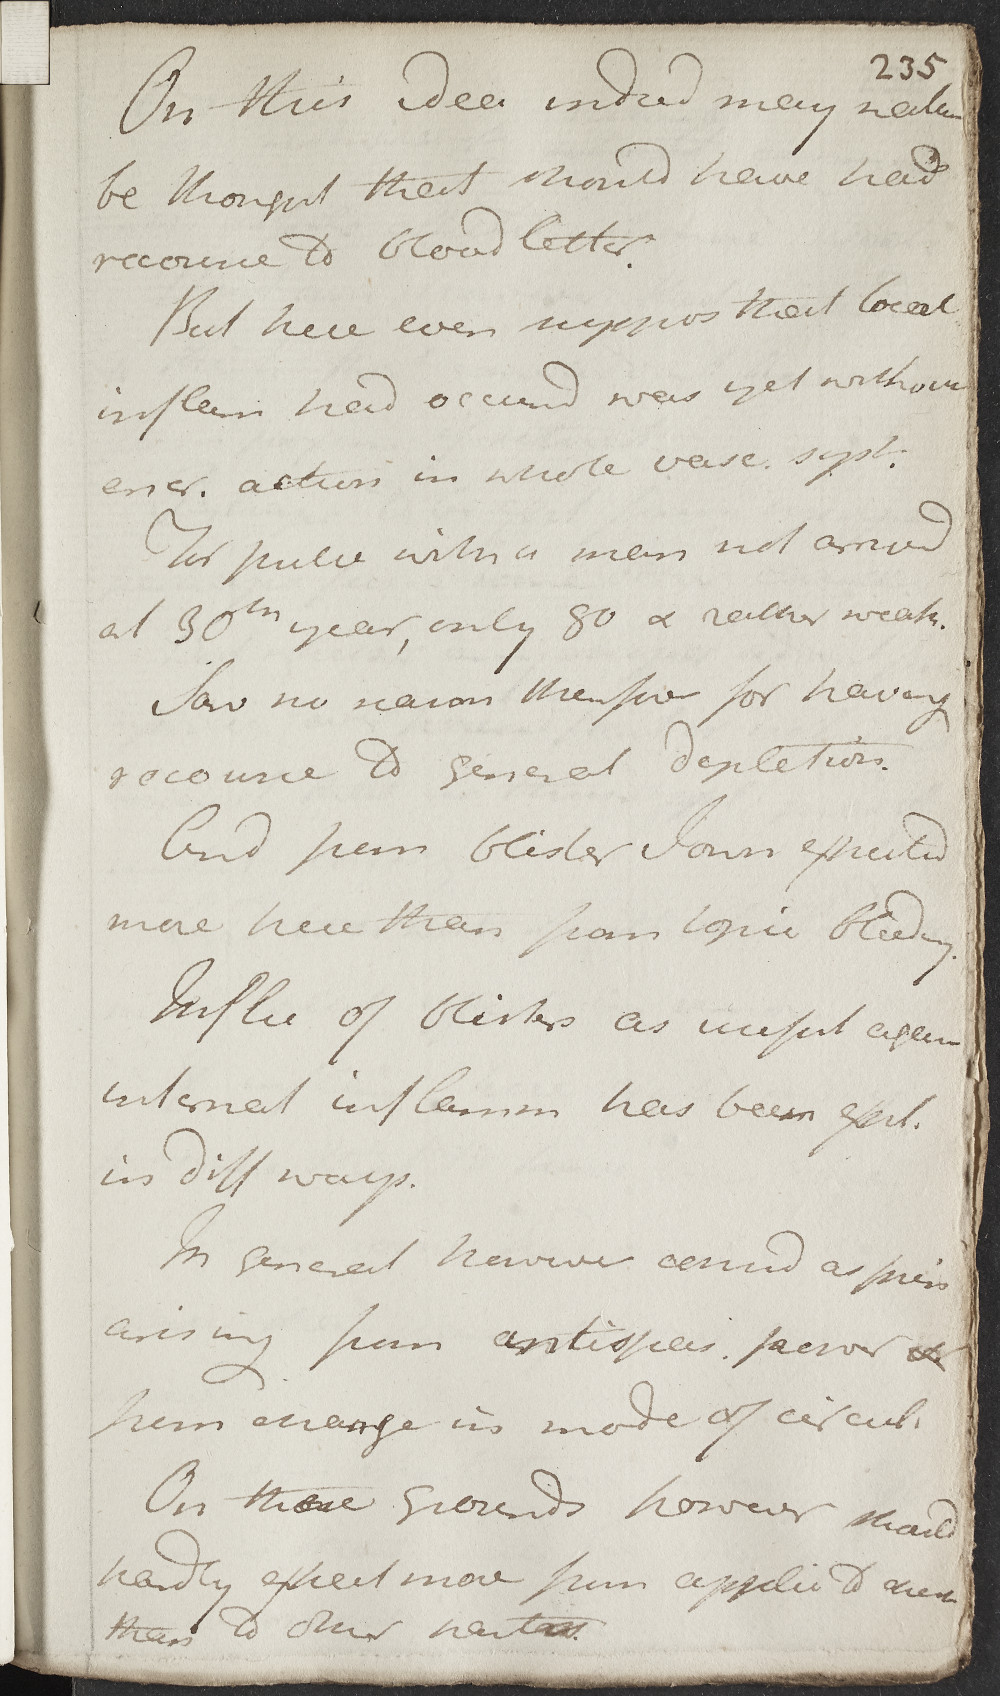 235
On this idea indeed may natur
be thought that should have had
recourse to bloodletter.
But here even suppos that local
inflam had occurred was yet without
encr. action in whole vasc. syst.
For pulse with a man not arrived
at 30th year, only 80 & rather weak.
Saw no reason therefore for having
recourse to general depletion.
And from blister I own expected
more here than from topic bleeding.
Influe of blisters as useful again
internal inflamm has been expl.
in diff ways.
In general however consid as
arising from antispas. power or
from change in mode of circul.
On these grounds however should
hardly expect more from applic to
than to other